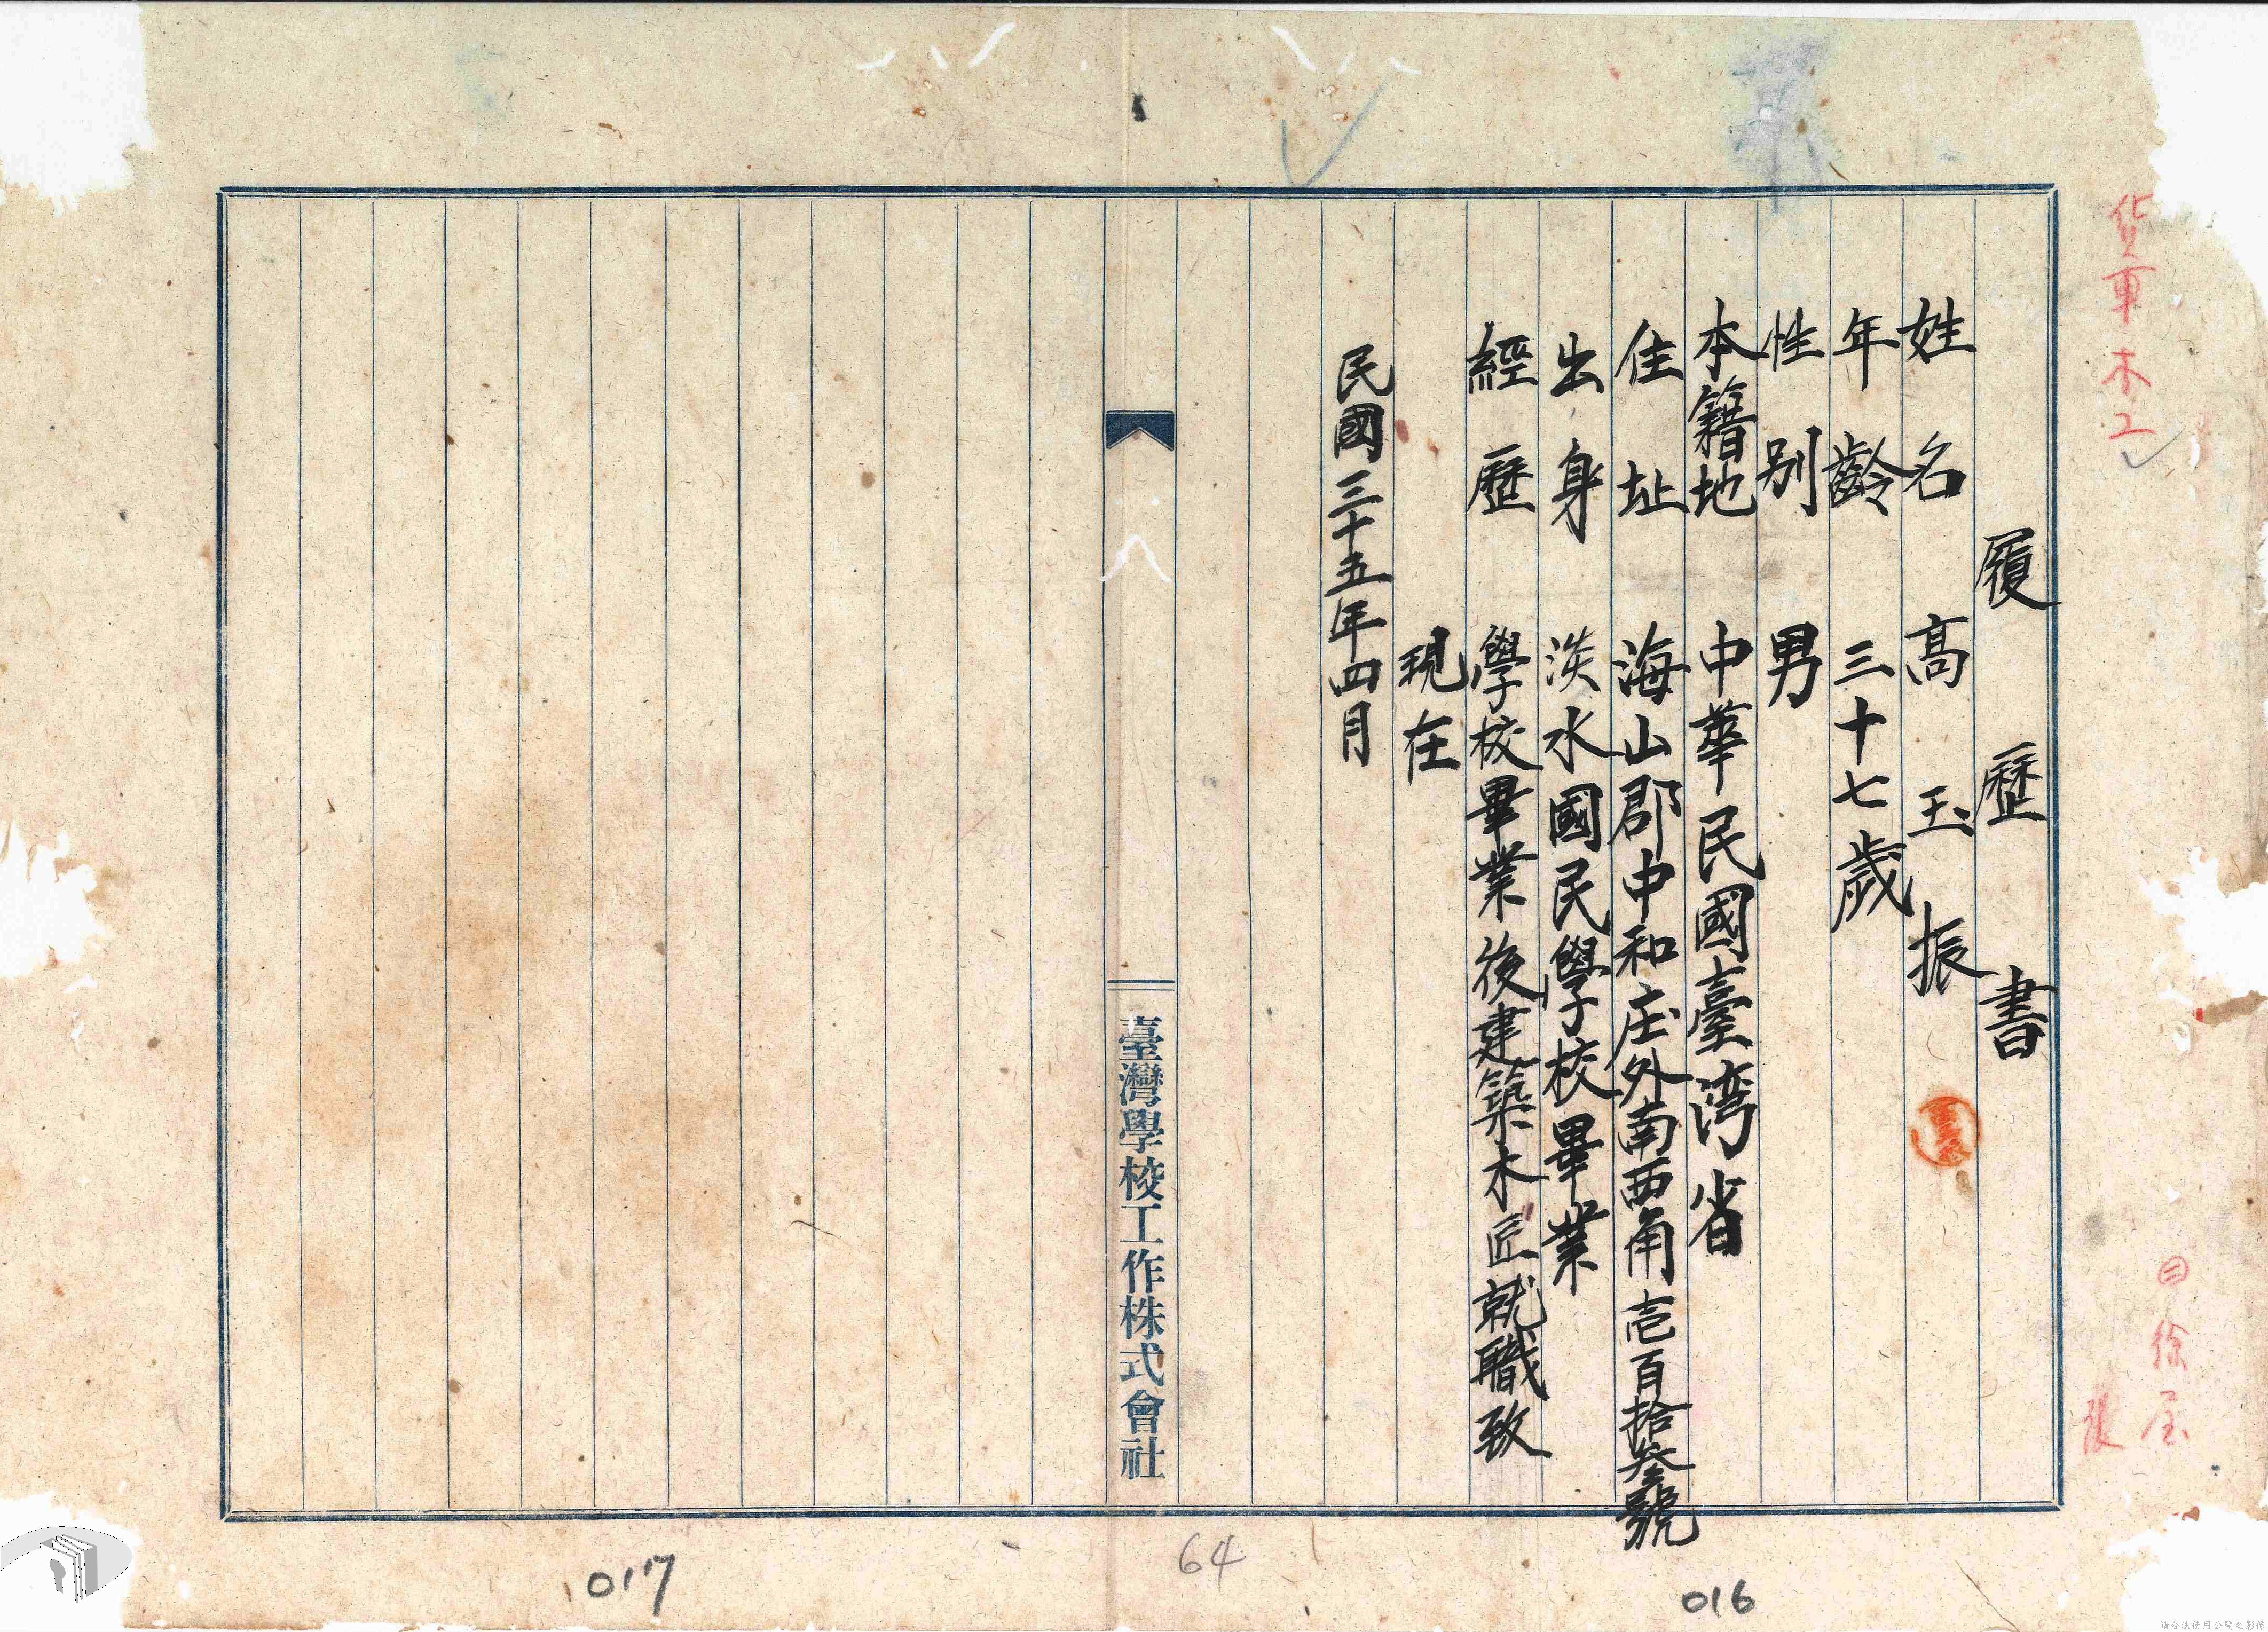 貨車木工
履歷書
姓名 高玉振
年齡 三十七歲
性別 男
本籍地 中華民國臺湾省
住址 海山郡中和庄外南西角壱百拾参號
出身 淡水國民學校畢業
經歷 學校畢業後建築木匠就職致
現在
民國三十五年四月
臺灣學校工作株式會社
㊂徐
張
016
64
017
請合法使用公開之影像